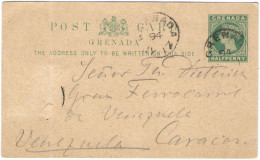 POST CARD
GRENADA
THE ADDRESS ONLY TO BE WRITTEN ON THIS SIDE
GRENADA
HALFPENNY
94
Señor
Gran Ferrocarril
de Venezuela
Venezuela Caracas